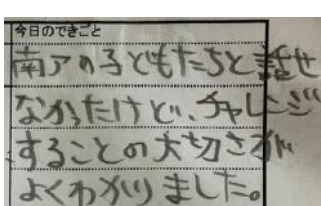 今日のできごと
南アの子どもたちと話せ
なかったけど、チャレンジ
することの大切さが
よくわかりました。